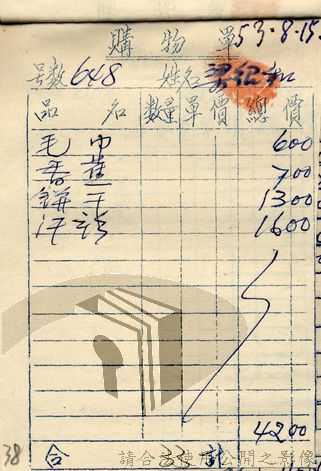 購物單 53.8.15.
号數 648 姓名 梁紀和
品名 數量 單價 總價
毛巾 600
香蕉 700
餅干 1300
汗衫 1600
4200
38 合 計
請合理使用公開之影像